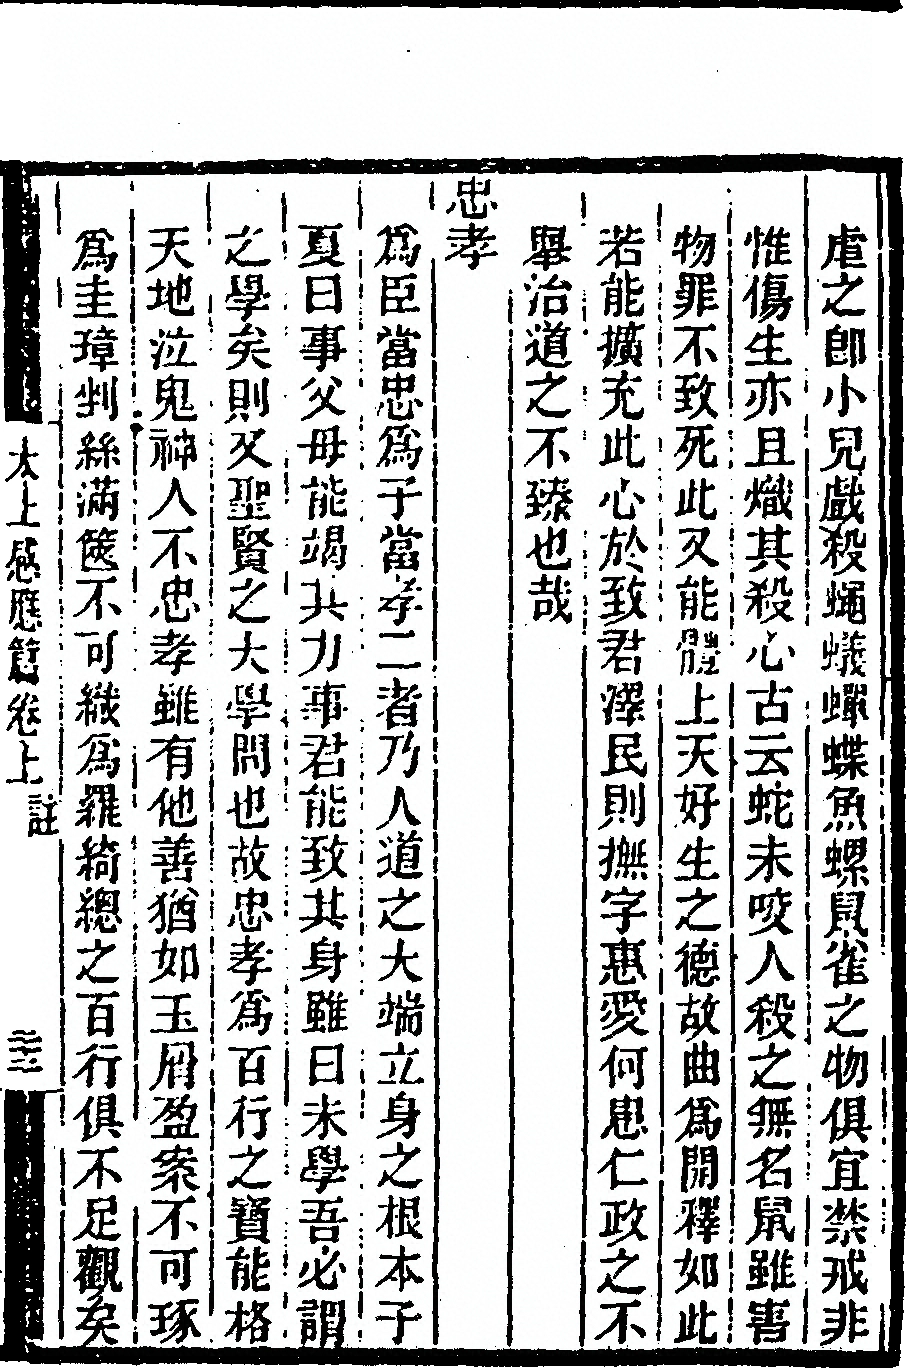 虐之卽小兒戲殺蠅蟻蟬蝶魚螺鼠雀之物俱宜禁戒非
惟傷生亦且熾其殺心古云蛇未咬人殺之無名鼠雖害
物罪不致死此又能體上天好生之德故曲爲開釋如此
若能擴充此心於致君澤民則撫字惠愛何患仁政之不
舉治道之不臻也哉
忠孝
爲臣當忠爲子當孝二者乃人道之大端立身之根本子
夏曰事父母能竭其力事君能致其身雖曰未學吾必謂
之學矣則又聖賢之大學問也故忠孝爲百行之寶能格
天地泣鬼神人不忠孝雖有他善猶如玉屑盈案不可琢
爲圭璋剉絲滿篋不可織爲羅綺總之百行俱不足觀矣
太上感應篇卷上 註